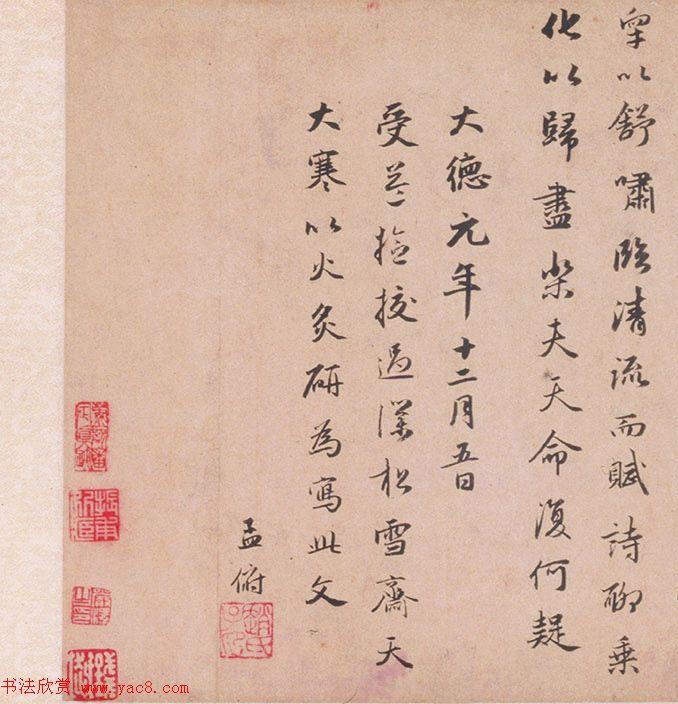 皐以舒嘯臨清流而賦詩聊乘
化以歸盡樂夫天命復何疑
大德元年十二月五日
受益提控過僕松雪齋天
大寒以火炙研為寫此文
孟俯
趙氏子昂
书法欣赏 www.yac8.com